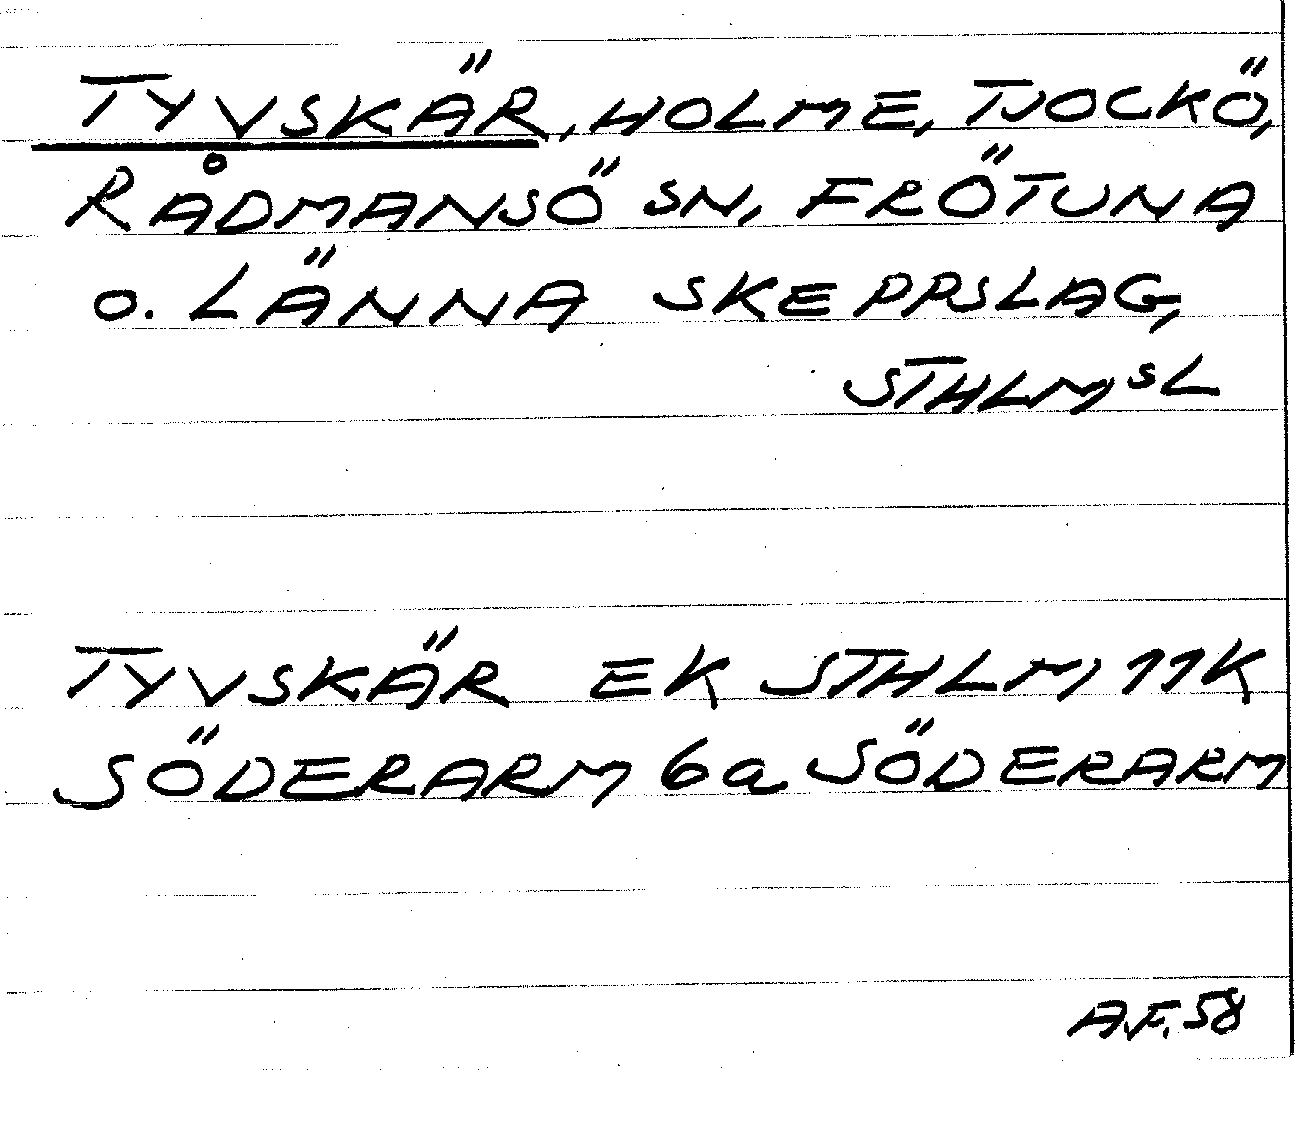 TYVSKÄR, HOLME, TJOCKÖ,
RÅDMANSÖ SN, FRÖTUNA
o. LÄNNA SKEPPSLAG,
STHLMSL
TYVSKÄR EK STHLM 11K
SÖDERARM 6a SÖDERARM
A.F. 58